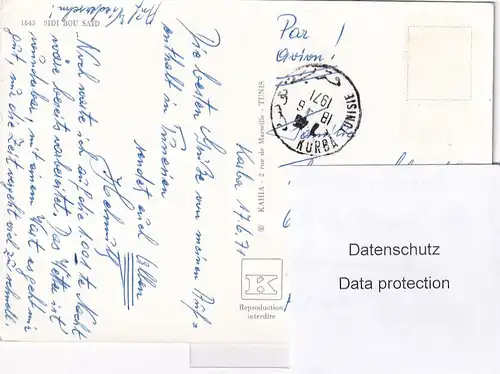 1645 SIDI BOU SAID
Auf Wiedersehn!
Korba 17.6.71
Die besten Grüße von meinem Auf=
enthalt in Tunesien
sendet euch allen
Helmut
Noch warte ich auf die 1001te Nacht
wäre bereits vorbereitet. Das Wetter ist
wunderbar, mit einem Wort es geht mir
gut, nur die Zeit vergeht viel zu schnell.
© KAHIA - 2 rue de Marseille - TUNIS
K
Reproduction
interdite
Par
avion!
18
6
1971
KORBA
TUNISIE
Datenschutz
Data protection